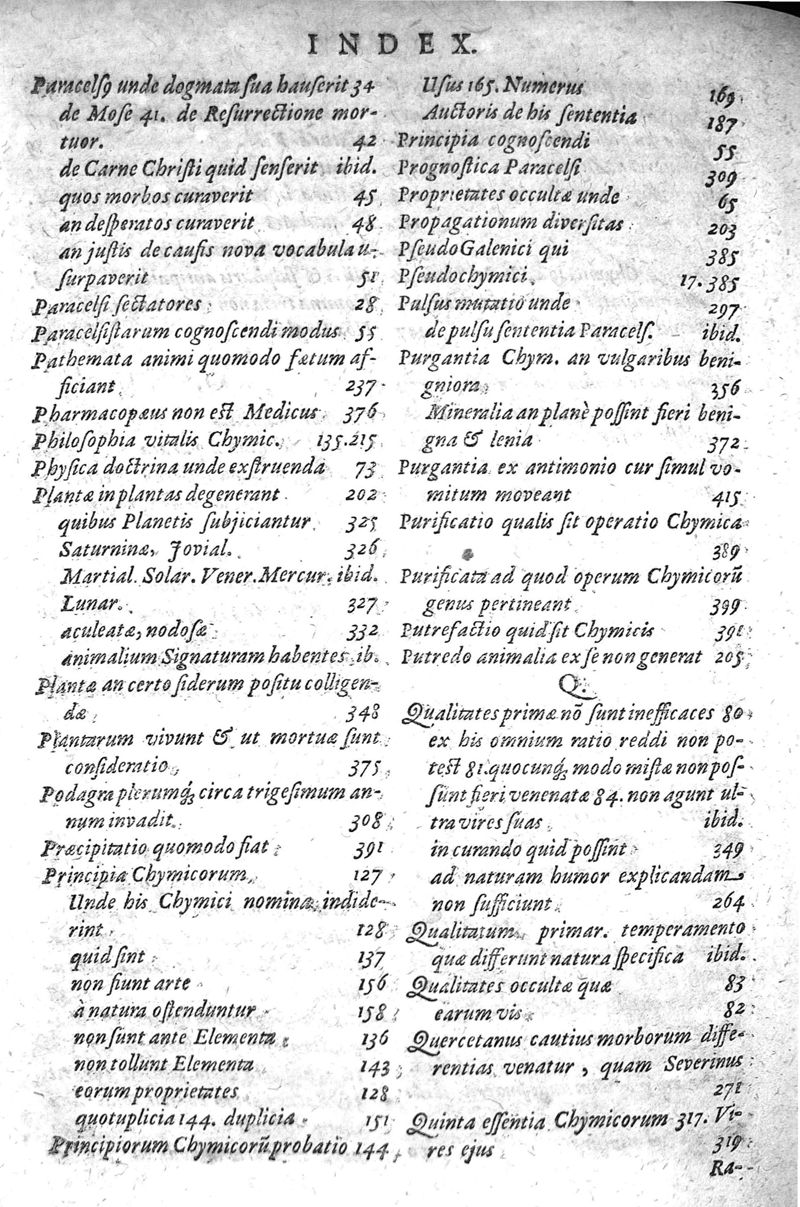 INDEX.
Paracelsꝰ unde dogmata sua hauserit 34
de Mose 41. de Resurrectione mor-
tuor. 42
de Carne Christi quid senserit ibid.
quos morbos curaverit 45
an desperatos curaverit 48
an justis de causis nova vocabula u-
surpaverit 51
Paracelsi sectatores 28
Paracelsistarum cognoscendi modus 55
Pathemata animi quomodo fœtum af-
ficiant 237
Pharmacopæus non est Medicus 376
Philosophia vitalis Chymic. 135.215
Physica doctrina unde exstruenda 73
Plantæ in plantas degenerant 202
quibus Planetis subjiciantur 325
Saturninæ, Jovial. 326
Martial. Solar. Vener. Mercur. ibid.
Lunar. 327
aculeatæ, nodosæ 332
animalium Signaturam habentes ib.
Plantæ an certo siderum positu colligen-
dæ 348
Plantarum vivunt & ut mortuæ sunt
consideratio 375
Podagra plerumq́; circa trigesimum an-
num invadit. 308
Præcipitatio quomodo fiat 391
Principia Chymicorum 127
Unde his Chymici nomina indide-
rint 128
quid sint 137
non fiunt arte 156
à natura ostenduntur 158
non sunt ante Elementa 136
non tollunt Elementa 143
eorum proprietates 128
quotuplicia 144. duplicia 151
Principiorum Chymicorũ probatio 144
Usus 165. Numerus 169
Auctoris de his sententia 187
Principia cognoscendi 55
Prognostica Paracelsi 309
Proprietates occultæ unde 65
Propagationum diversitas 203
PseudoGalenici qui 385
Pseudochymici 17.385
Pulsus mutatio unde 297
de pulsu sententia Paracels. ibid.
Purgantia Chym. an vulgaribus beni-
gniora 356
Mineralia an planè possint fieri beni-
gna & lenia 372
Purgantia ex antimonio cur simul vo-
mitum moveant 415
Purificatio qualis sit operatio Chymica
389
Purificata ad quod operum Chymicorũ
genus pertineant 399
Putrefactio quid sit Chymicis 391
Putredo animalia ex se non generat 205
Q.
Qualitates primæ nõ sunt inefficaces 80
ex his omnium ratio reddi non po-
test 81. quocunq́; modo mistæ non pos-
sunt fieri venenatæ 84. non agunt ul-
tra vires suas ibid.
in curando quid possint 349
ad naturam humor explicandam
non sufficiunt 264
Qualitatum primar. temperamento
quæ differunt natura specifica ibid.
Qualitates occultæ quæ 83
earum vis 82
Quercetanus cautius morborum diffe-
rentias venatur, quam Severinus
271
Quinta essentia Chymicorum 317. Vi-
res ejus 319
Ra-